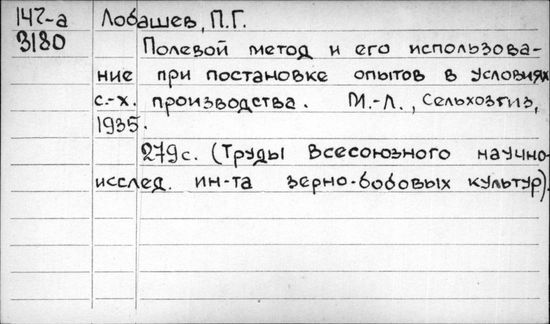 147-а Лобашев, П.Г.
3180 Полевой метод и его использова-
ние при постановке опытов в условиях
с.-х. производства. М.-Л., Сельхозгиз,
1935.
279с. (Труды Всесоюзного научно-
исслед. ин-та зерно-бобовых культур).